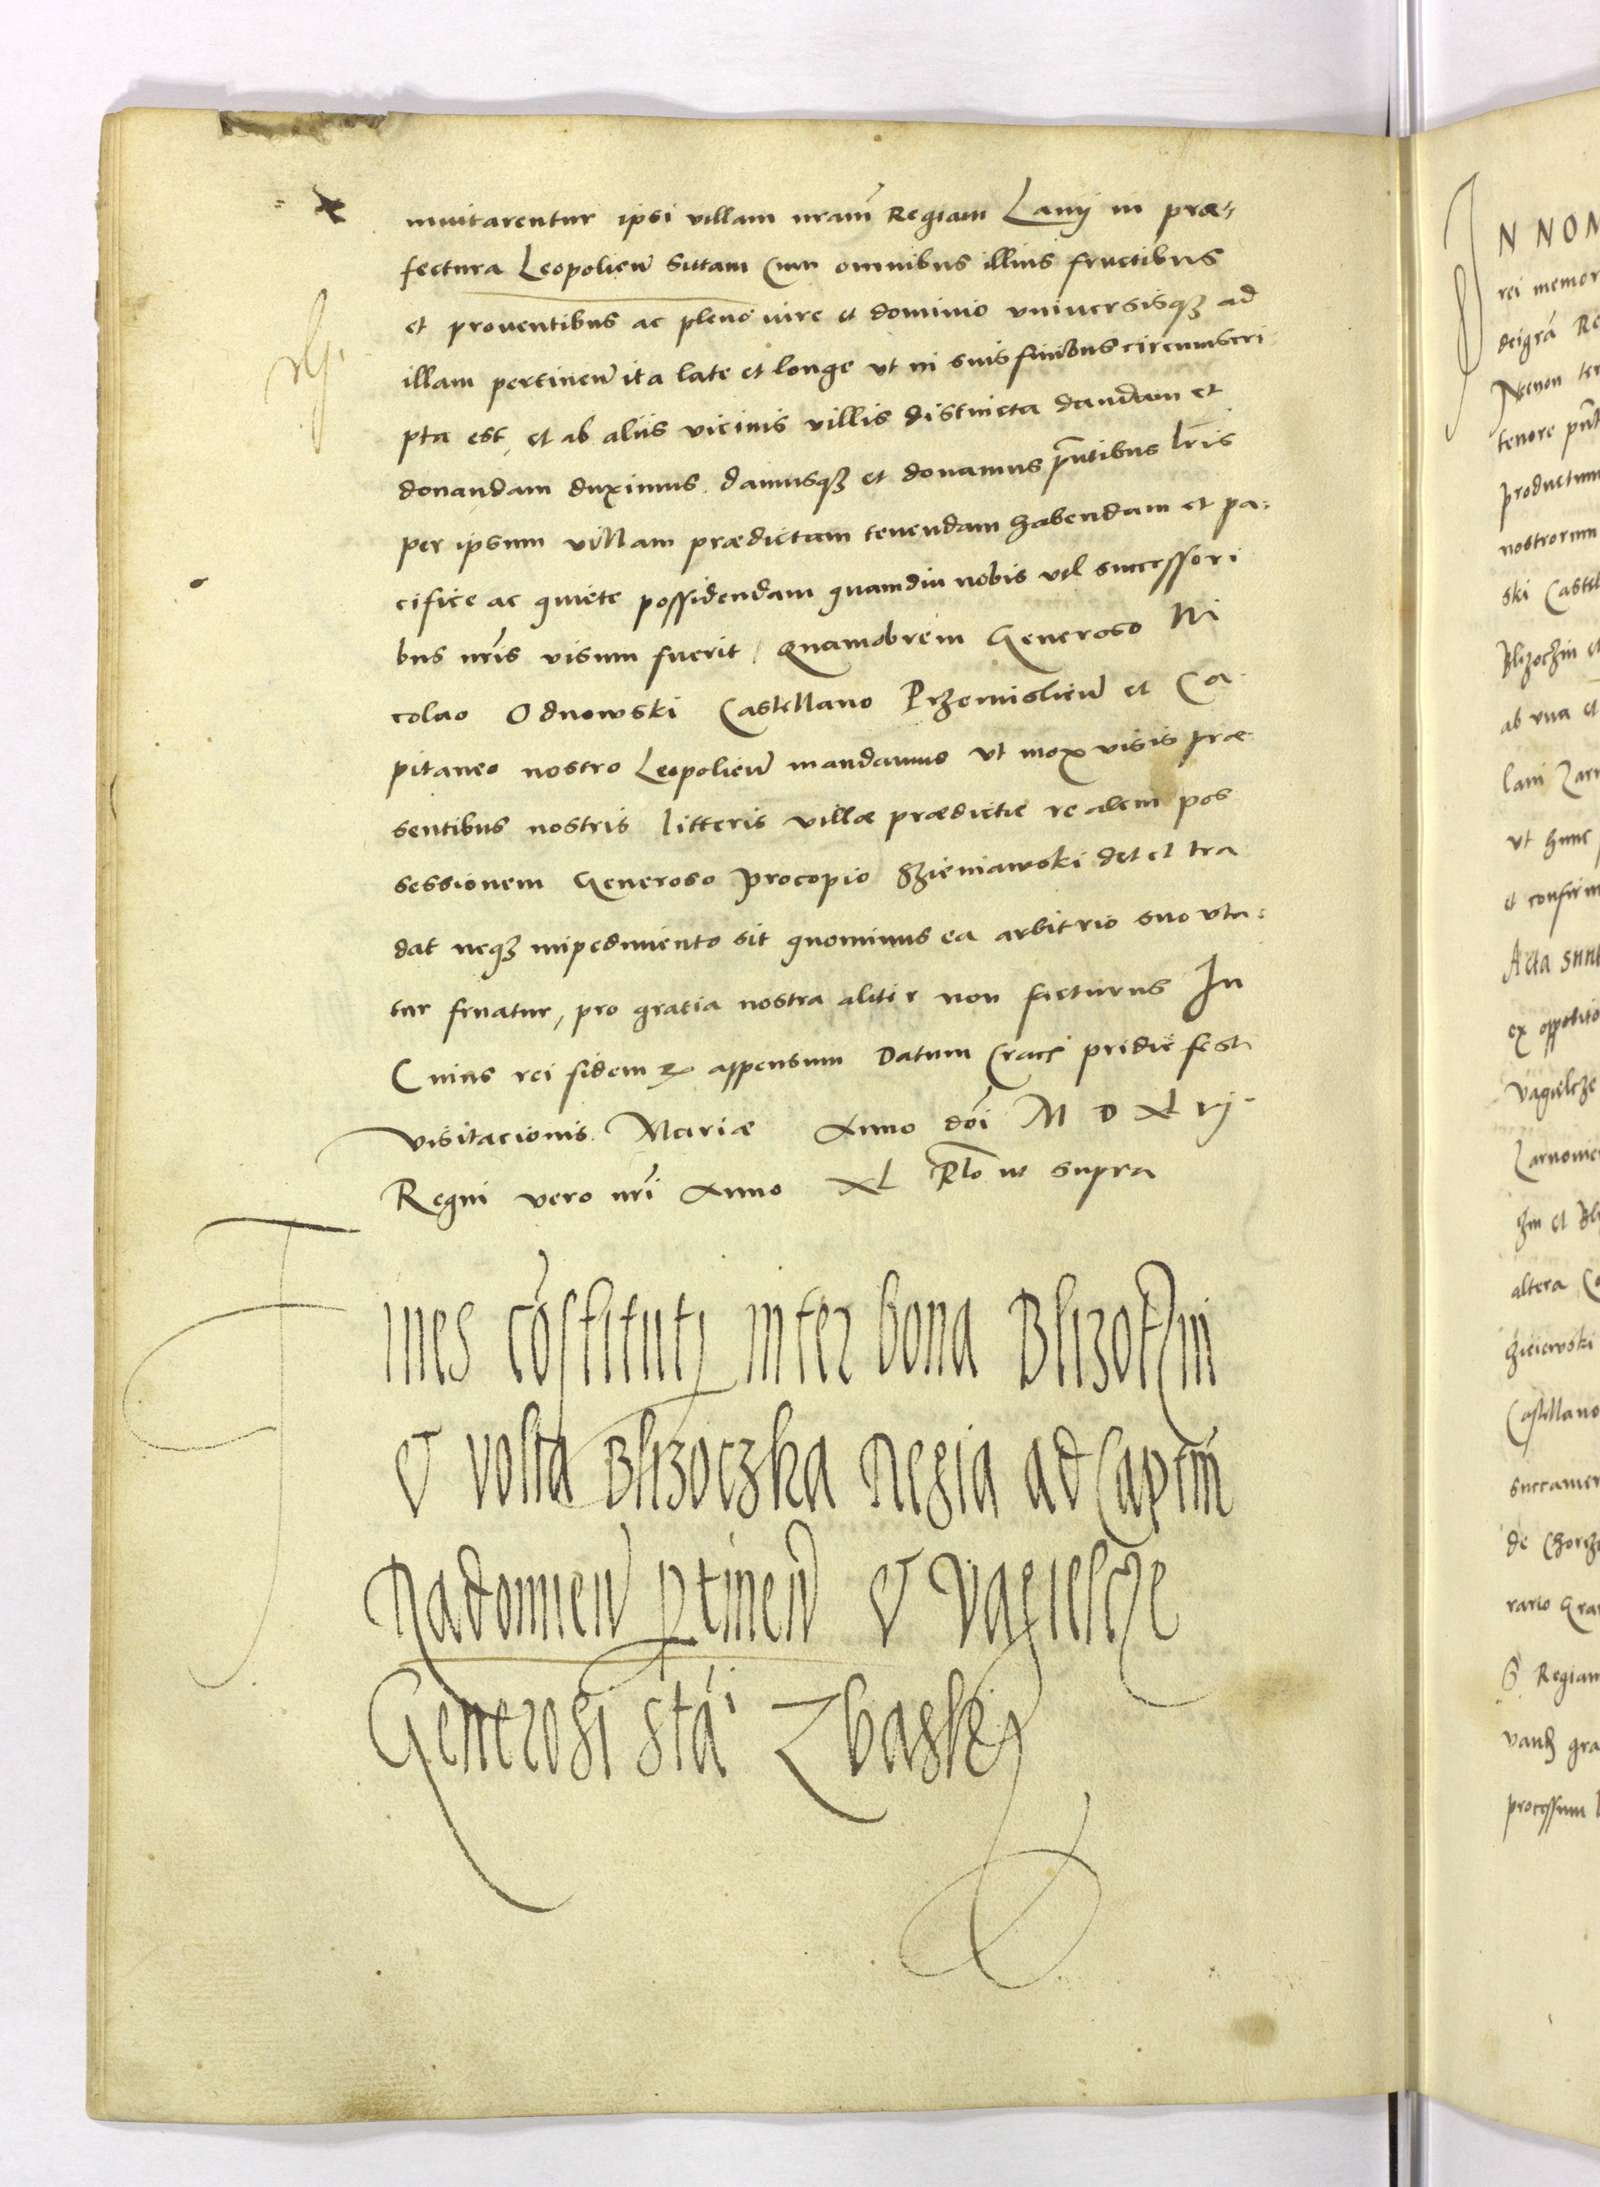 invitarentur ipsi villam nram Regiam Lany in præ-
fectura Leopolien sittam Cum omnibus illius fructibus
et proventibus ac pleno iure et dominio vniversisqz ad
illam pertinen ita late et longe vt in suis finibus circumscri
pta est, et ab aliis vicinis villis distincta dandam et
donandam duximus. damusqz et donamus pntibus lris
per ipsum villam prædictam tenendam habendam et pa-
cifice ac quiete possidendam quamdiu nobis vel successori
bus nris visum fuerit, Quamobrem Generoso Ni
colao Odnowski Castellano Przemislien et Ca-
pitaneo nostro Leopolien mandamus vt mox visis præ-
sentibus nostris litteris villæ prædictæ realem pos
sessionem Generoso Procopio Szieniawski det et tra
dat neqz impedimento sit quominus ea arbitrio suo vta-
tur fruatur, pro gratia nostra aliter non facturus In
Cuius rei fidem appensum Datum Cracœ pridie festi
visitacionis Mariæ Anno doi M D XL vj.
Regni vero nri Anno XL Rlo vt supra
Fines cōstituti inter bona Blizotzin
et volta Blizoczka Regia ad Captm
Radomien ptinen et Vagielcze
Generosi stai Zbaski
IN NOM
rei memor
deigrã Re
Necnon ter
tenore pnt
productum
nostrorum
ski Castel
Blizoczin et
ab vna et
lani Zarn
vt hunc
et confirm
Acta sunt
ex opposito
vagielcze
Zarnowie
zin et Bli
altera Co
ziciewski
Castellano
succamer
de Chorz
rario Gra
S. Regiam
gra
processum